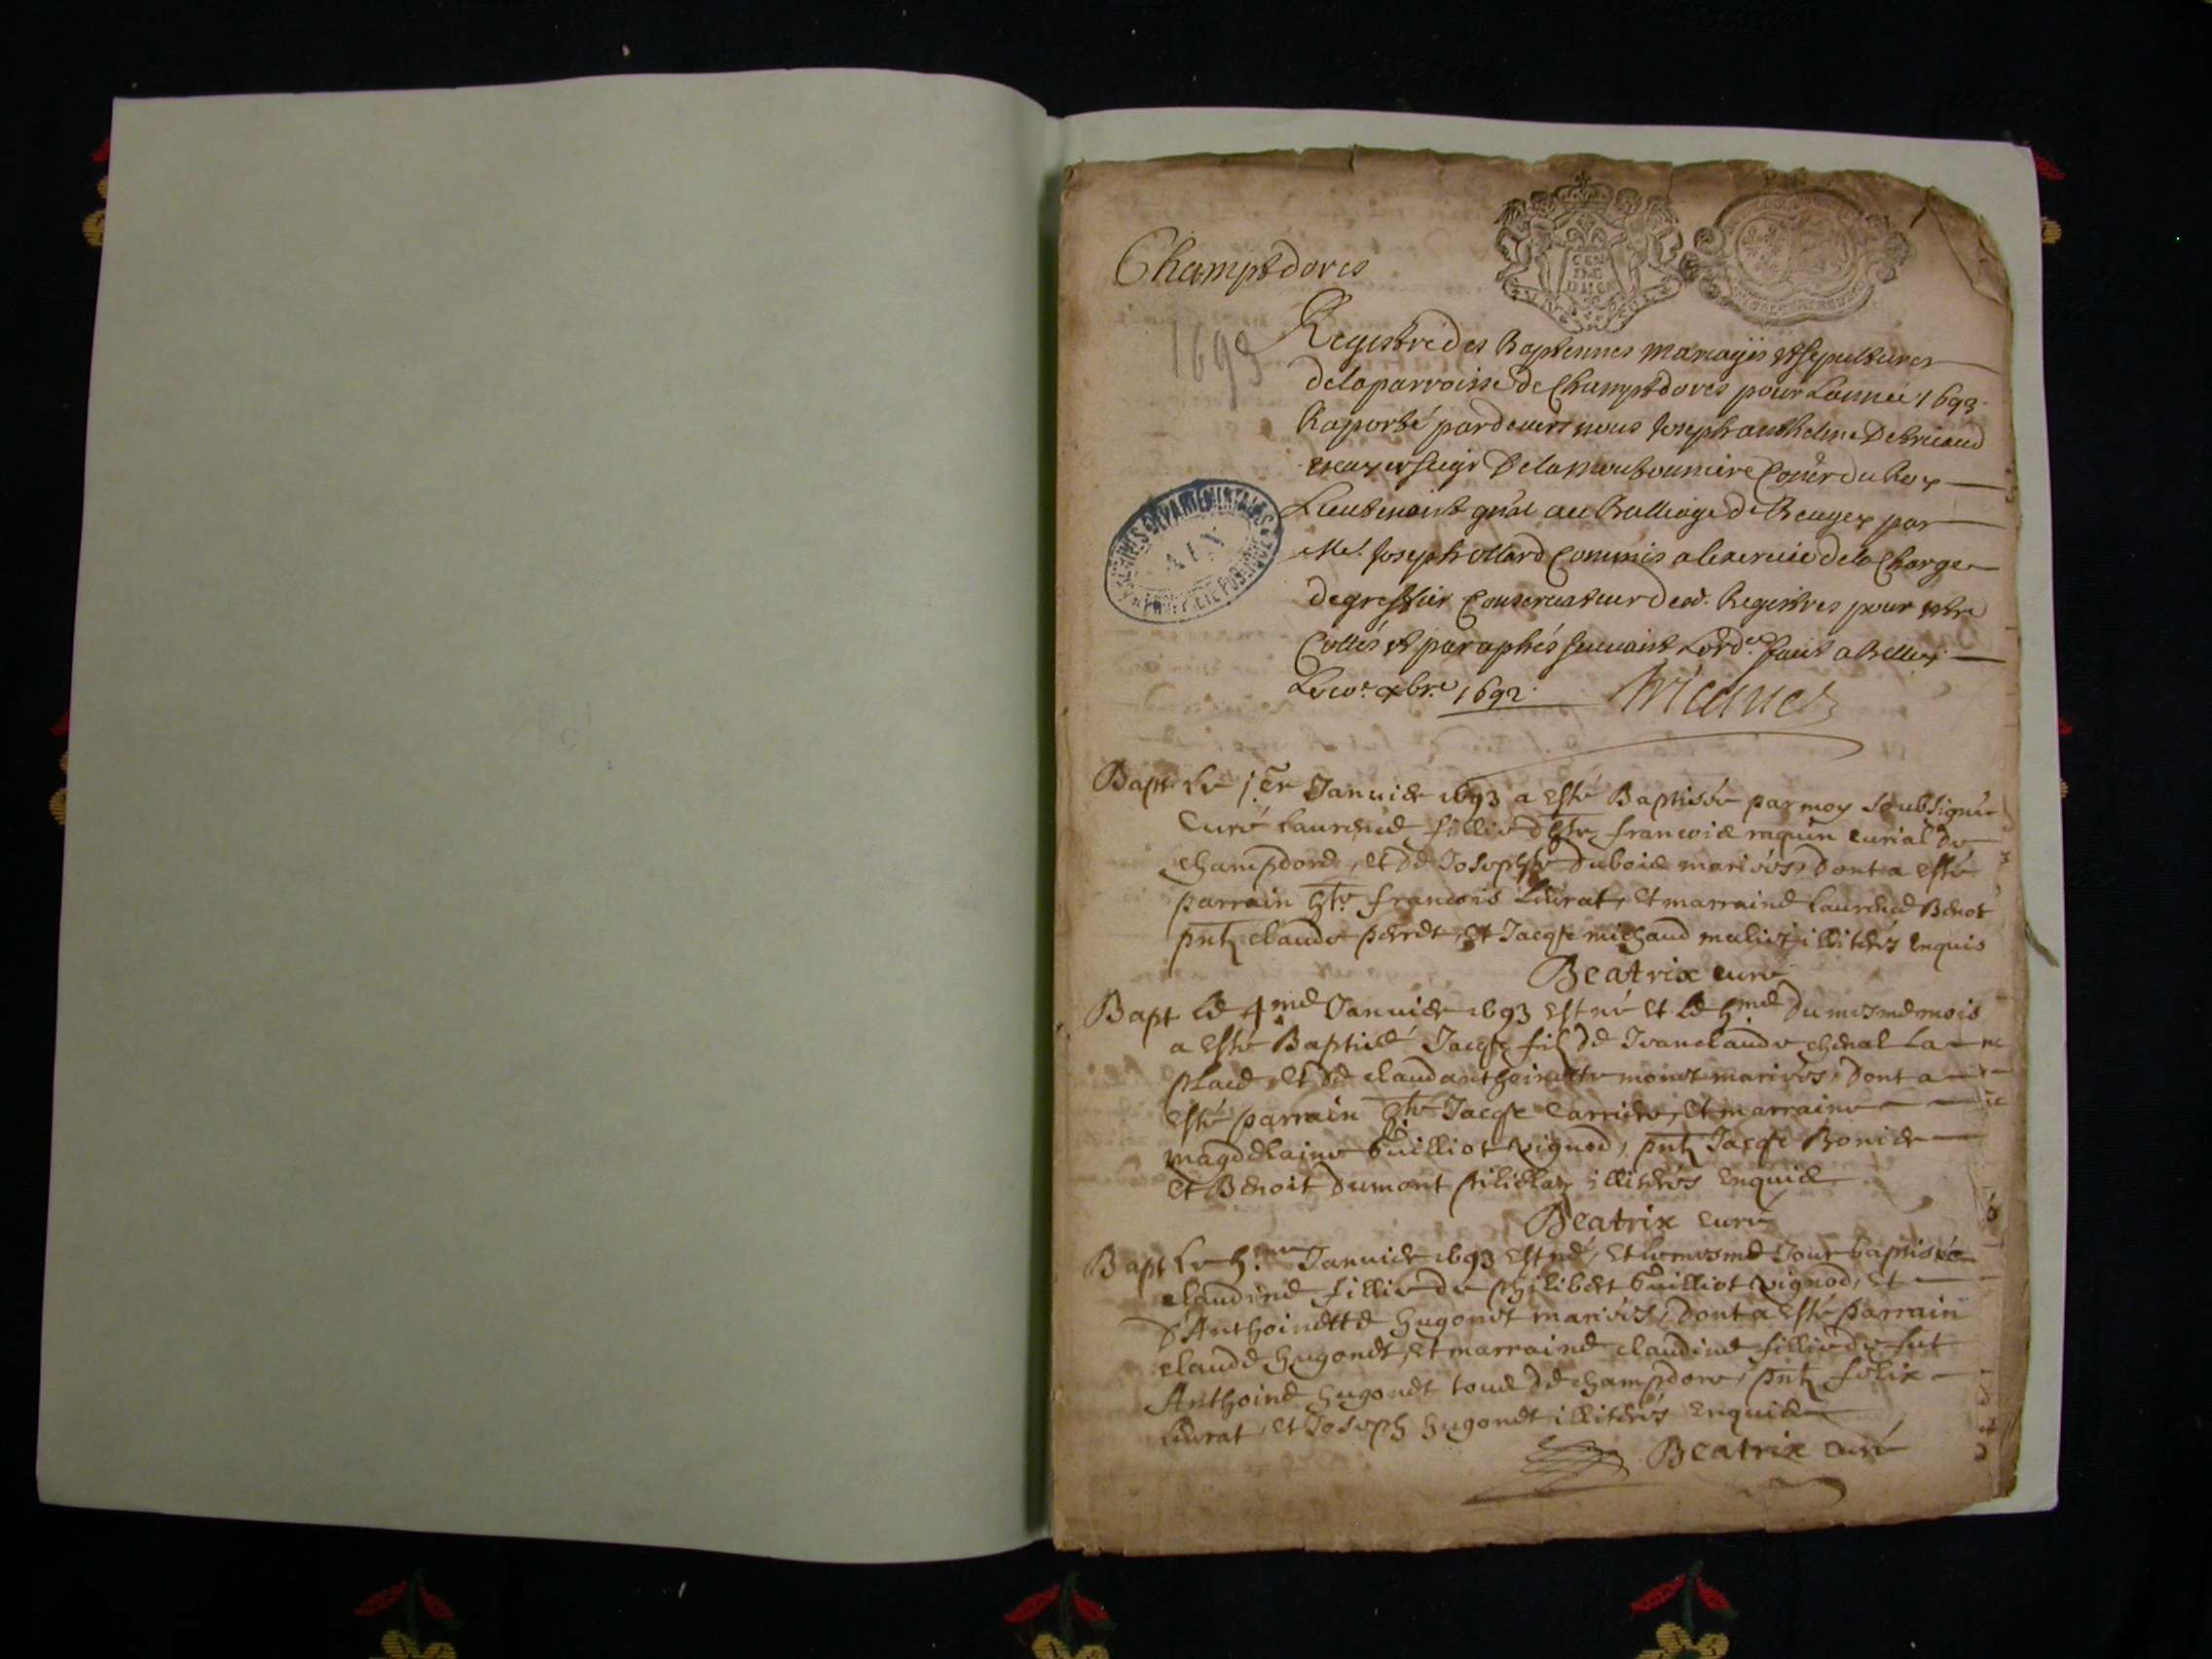 Champtdores
1693
CEN
INE
Registre des Baptesmes mariages et sepultures
de la parroisse de Champtdores pour Lannée 1693
Raporté pardevert nous Joseph anthelme Debricaud
escuyer seigr De la mouttonniere Conêr du Roy
Lieutenant gnãl au Balliage de Beugey par
Me. Joseph ollard Commis a lexercice de la Charge
de greffier Conservateur desd. Registres pour estre
Cottés et paraphés suivant Lordce faict a Belley
Le xbre 1692
ARCHIVES DEPARTEMENTALES
AIN
Bapt Le 1er Janvier 1693 a esté Baptisée par moy soubsigné
Curé laurence fillie dhte francois raquin curial de
champdore, et de Josephte Dubois mariées, dont a esté
parrain hte francois Liurat, et marraine laurence Benot
pntz claude perret, et Jacqse michaud meliet illiterés enquis
Beatrix curé
Bapt Le 4me Janvier 1693 est né et le 5me du mesme mois
a esté Baptisé Jacqse fil de Jean claude cheval la
place et de claud anthoinette monet mariées, dont a
esté parrain hte Jacqse Carrier, et marraine
magdelaine Guilliot vignod, pntz Jacqse Bonier
et Benoit dumont illiterés enquis
Beatrix curé
Bapt Le 5me Janvier 1693 est né, et le mesme Jour baptisée
claudine fillie de philibert Guilliot vignod, et
d'Anthoinette hugonet mariées, dont a esté parrain
claude hugonet, et marraine claudine fillie de fut
Anthoine hugonet tous de champdore, pntz felix
Liurat, et Joseph hugonet illiterés enquis
Beatrix curé